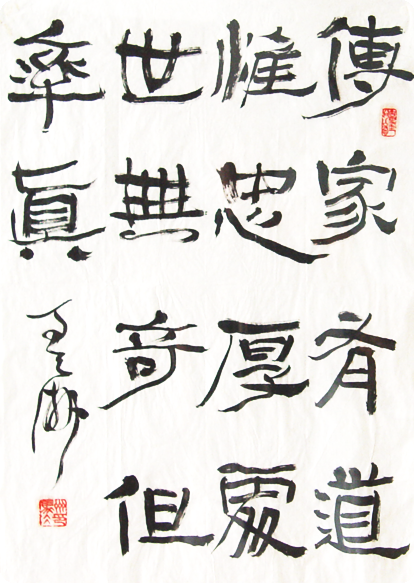 傳家有道
惟忠厚處
世無奇但
率眞